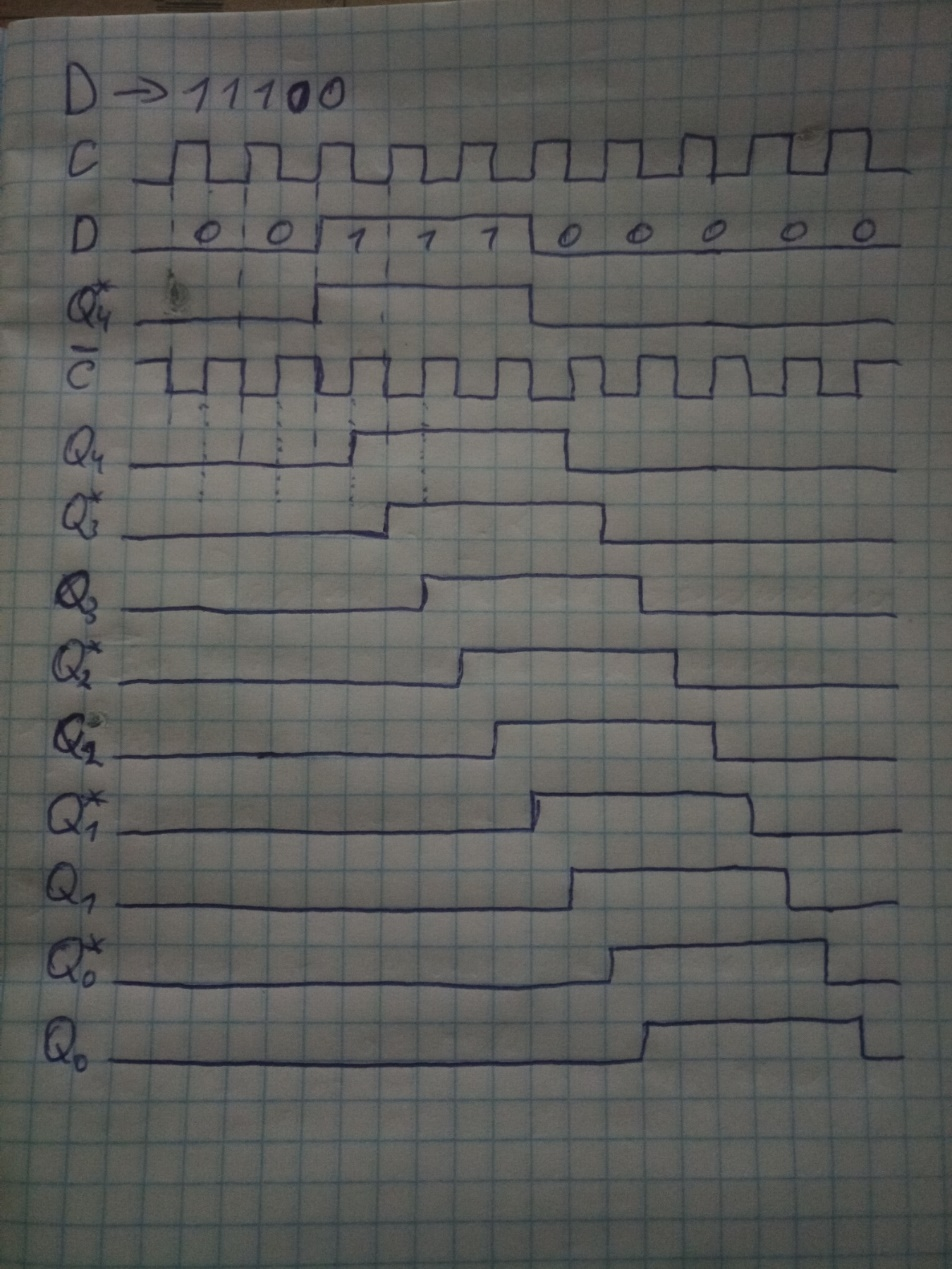 D → 11100
C
D 0 0 1 1 1 0 0 0 0 0
Q₄*
C̅
Q₄
Q₃*
Q₃
Q₂*
Q₂
Q₁*
Q₁
Q₀*
Q₀